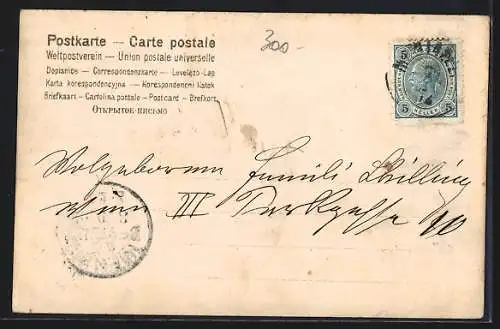 Postkarte — Carte postale
300-
Weltpostverein — Union postale universelle
Dopisnice — Correspondenzkarte — Levelező-Lap
Karta korespondencyjna — Korespondencni listek
Briefkaart — Cartolina postale — Postcard — Brefkort
Открытое письмо
5 5
5 HELLER 5
Wolgeboren Famili Schilling
Wien III Parkgasse 10
WIEN